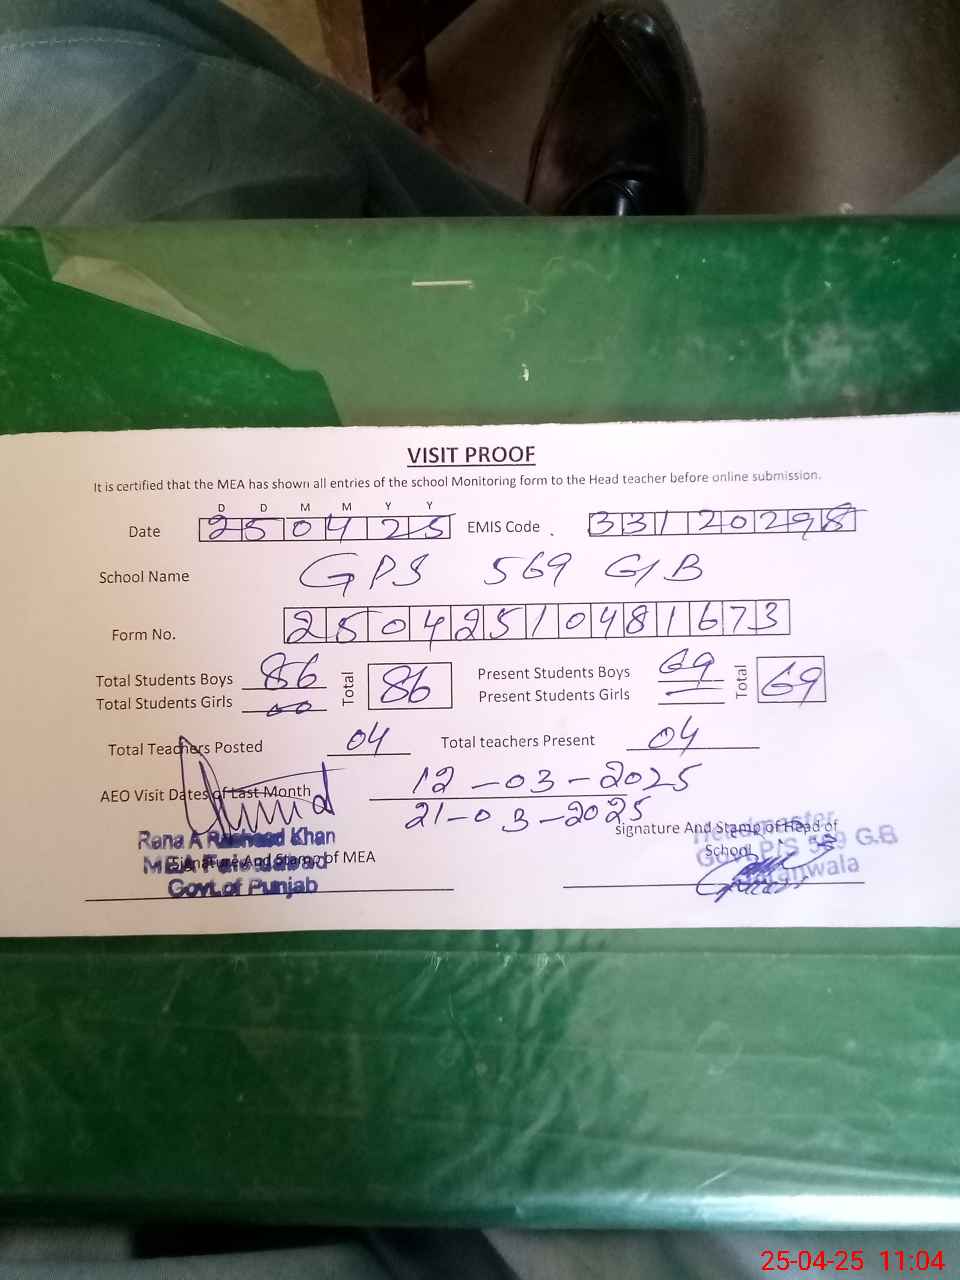 VISIT PROOF
It is certified that the MEA has shown all entries of the school Monitoring form to the Head teacher before online submission.
D D M M Y Y
Date 250425 EMIS Code . 33120298
School Name GPS 569 G/B
Form No. 25042510481673
Total Students Boys 86 Total 86 Present Students Boys 69 Total 69
Total Students Girls 00 Present Students Girls —
Total Teachers Posted 04 Total teachers Present 04
AEO Visit Dates of Last Month 12-03-2025
21-03-2025
signature And Stamp of Head of
School
Headmaster
Govt. P/S 569 G.B
Jaranwala
Rana A Rasheed Khan
MEA Faisalabad
Signature And Stamp of MEA
Govt. of Punjab
25-04-25 11:04